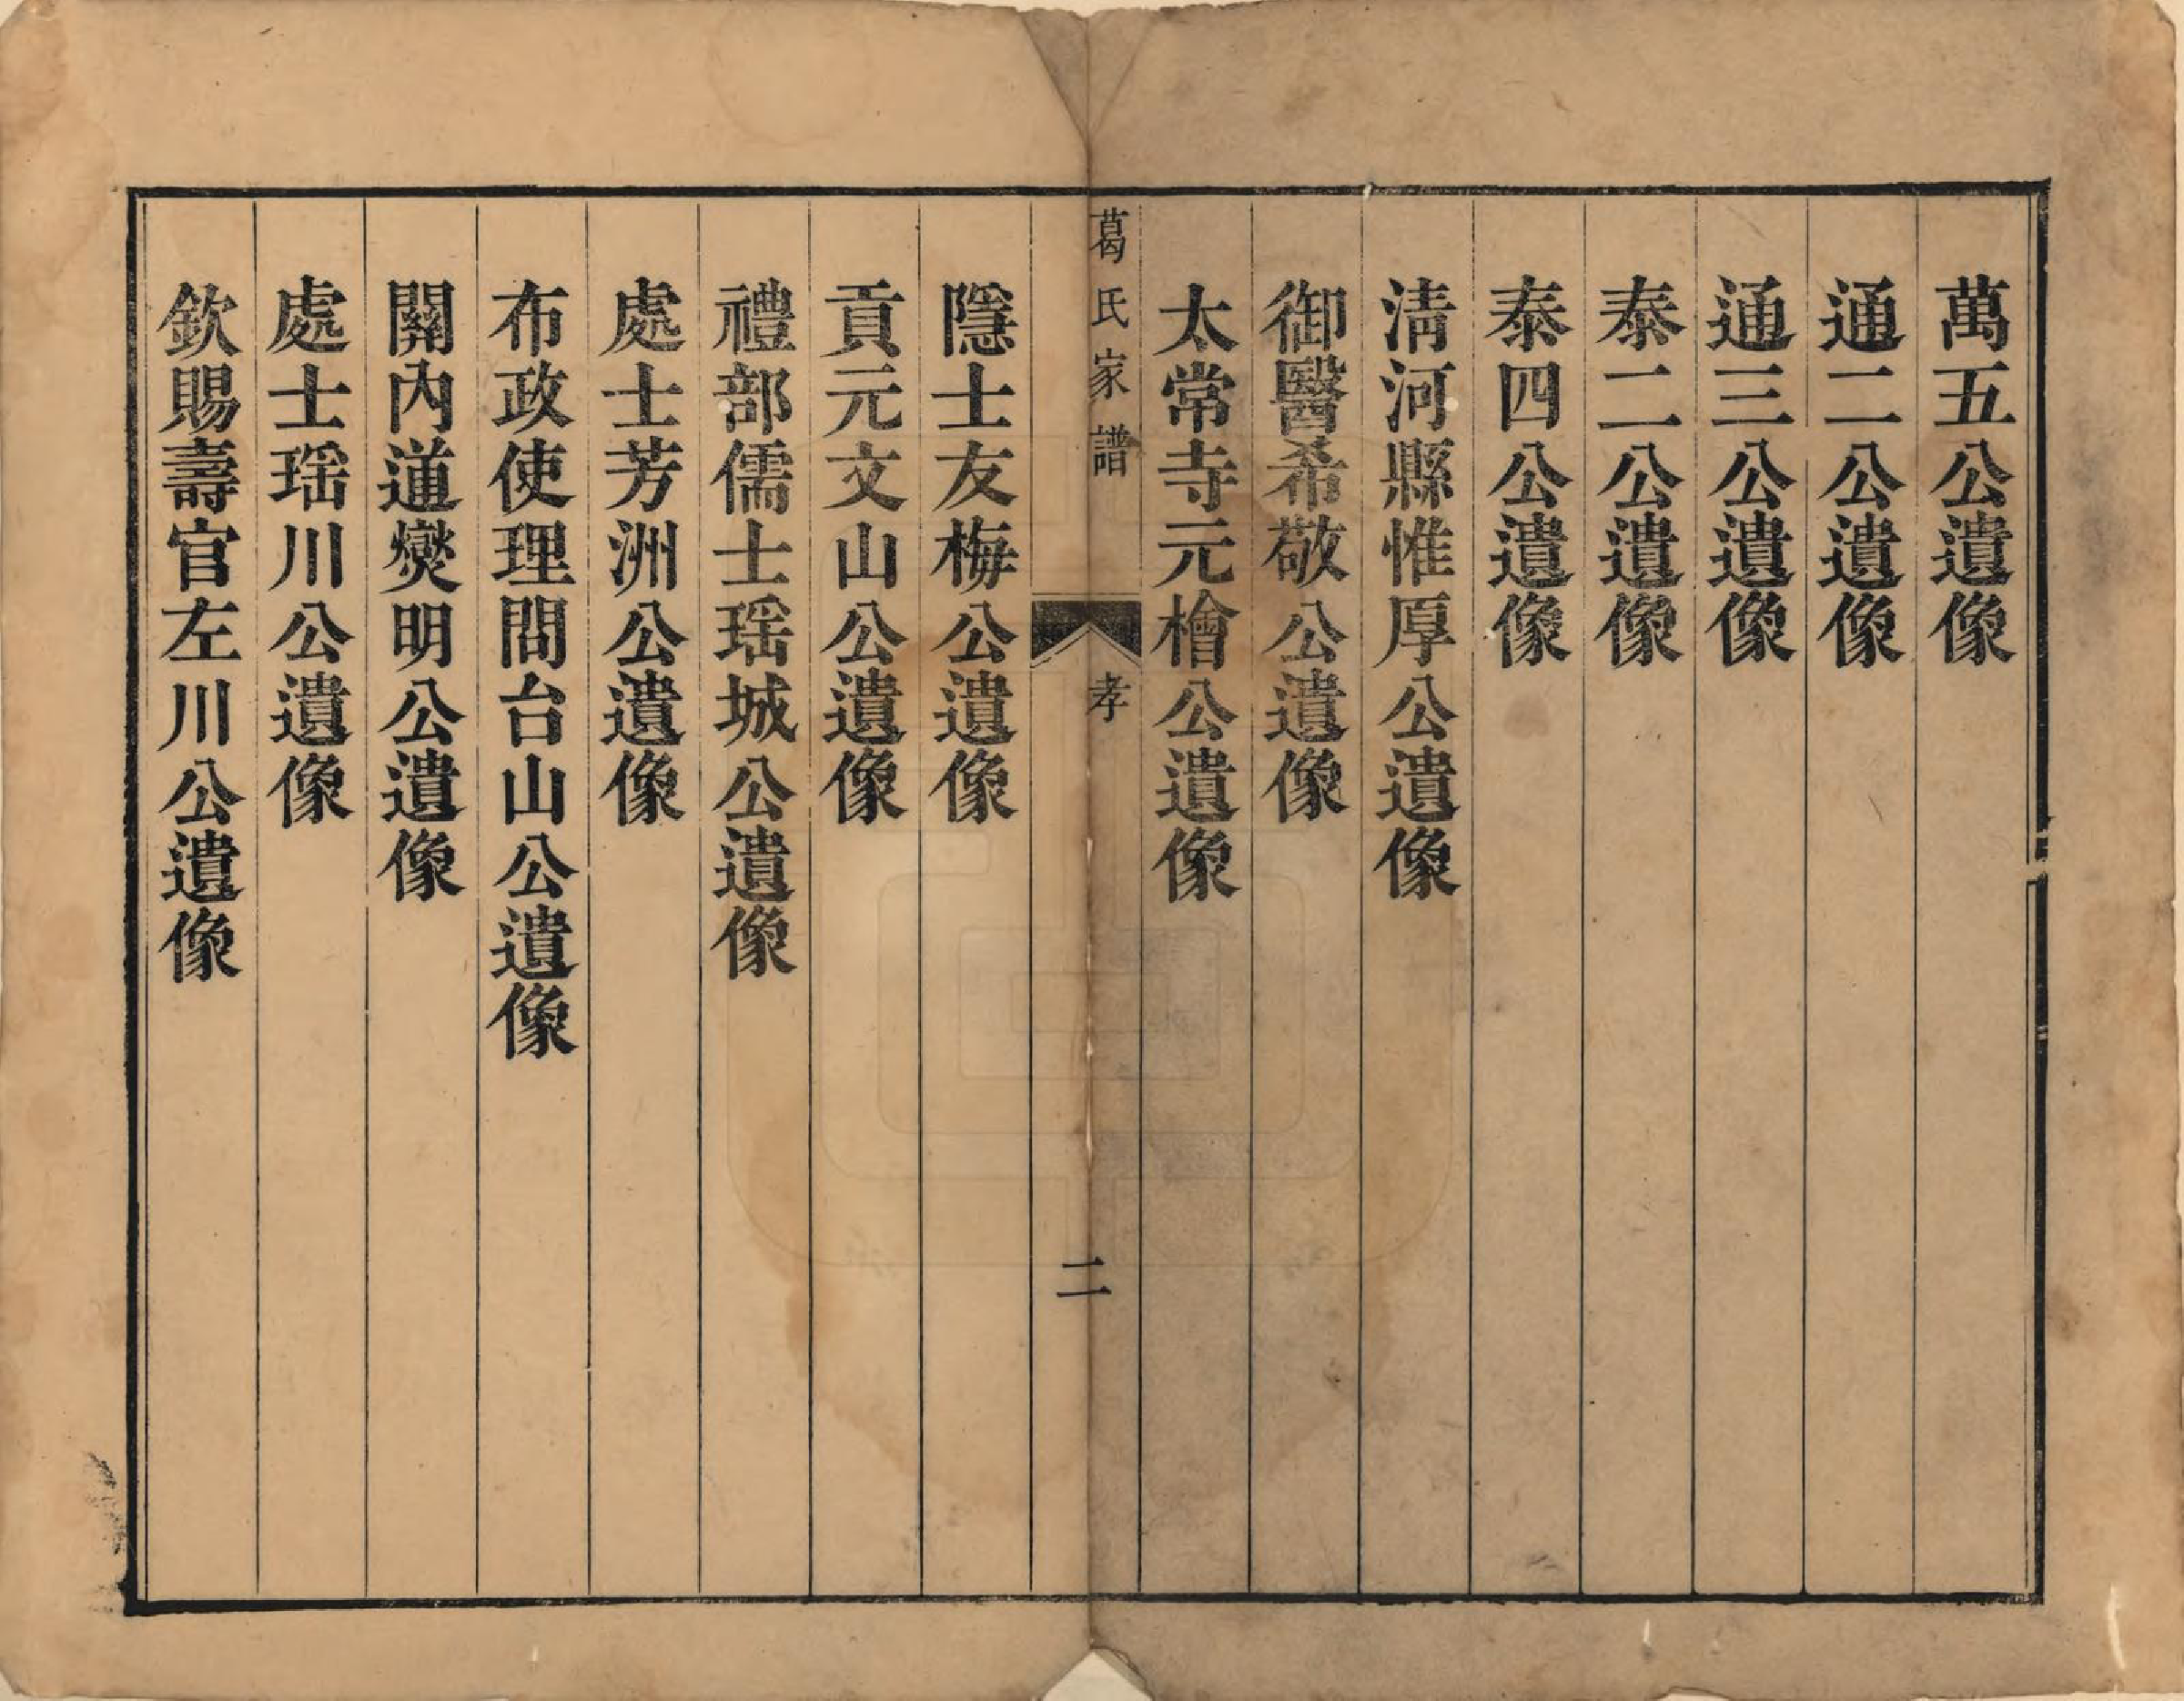 萬五公遺像
通二公遺像
通三公遺像
泰二公遺像
泰四公遺像
淸河縣惟厚公遺像
御醫希敬公遺像
太常寺元檜公遺像
葛氏家譜
孝
二
隱士友梅公遺像
貢元文山公遺像
禮部儒士瑶城公遺像
處士芳洲公遺像
布政使理問台山公遺像
關內道爕明公遺像
處士瑶川公遺像
欽賜壽官左川公遺像